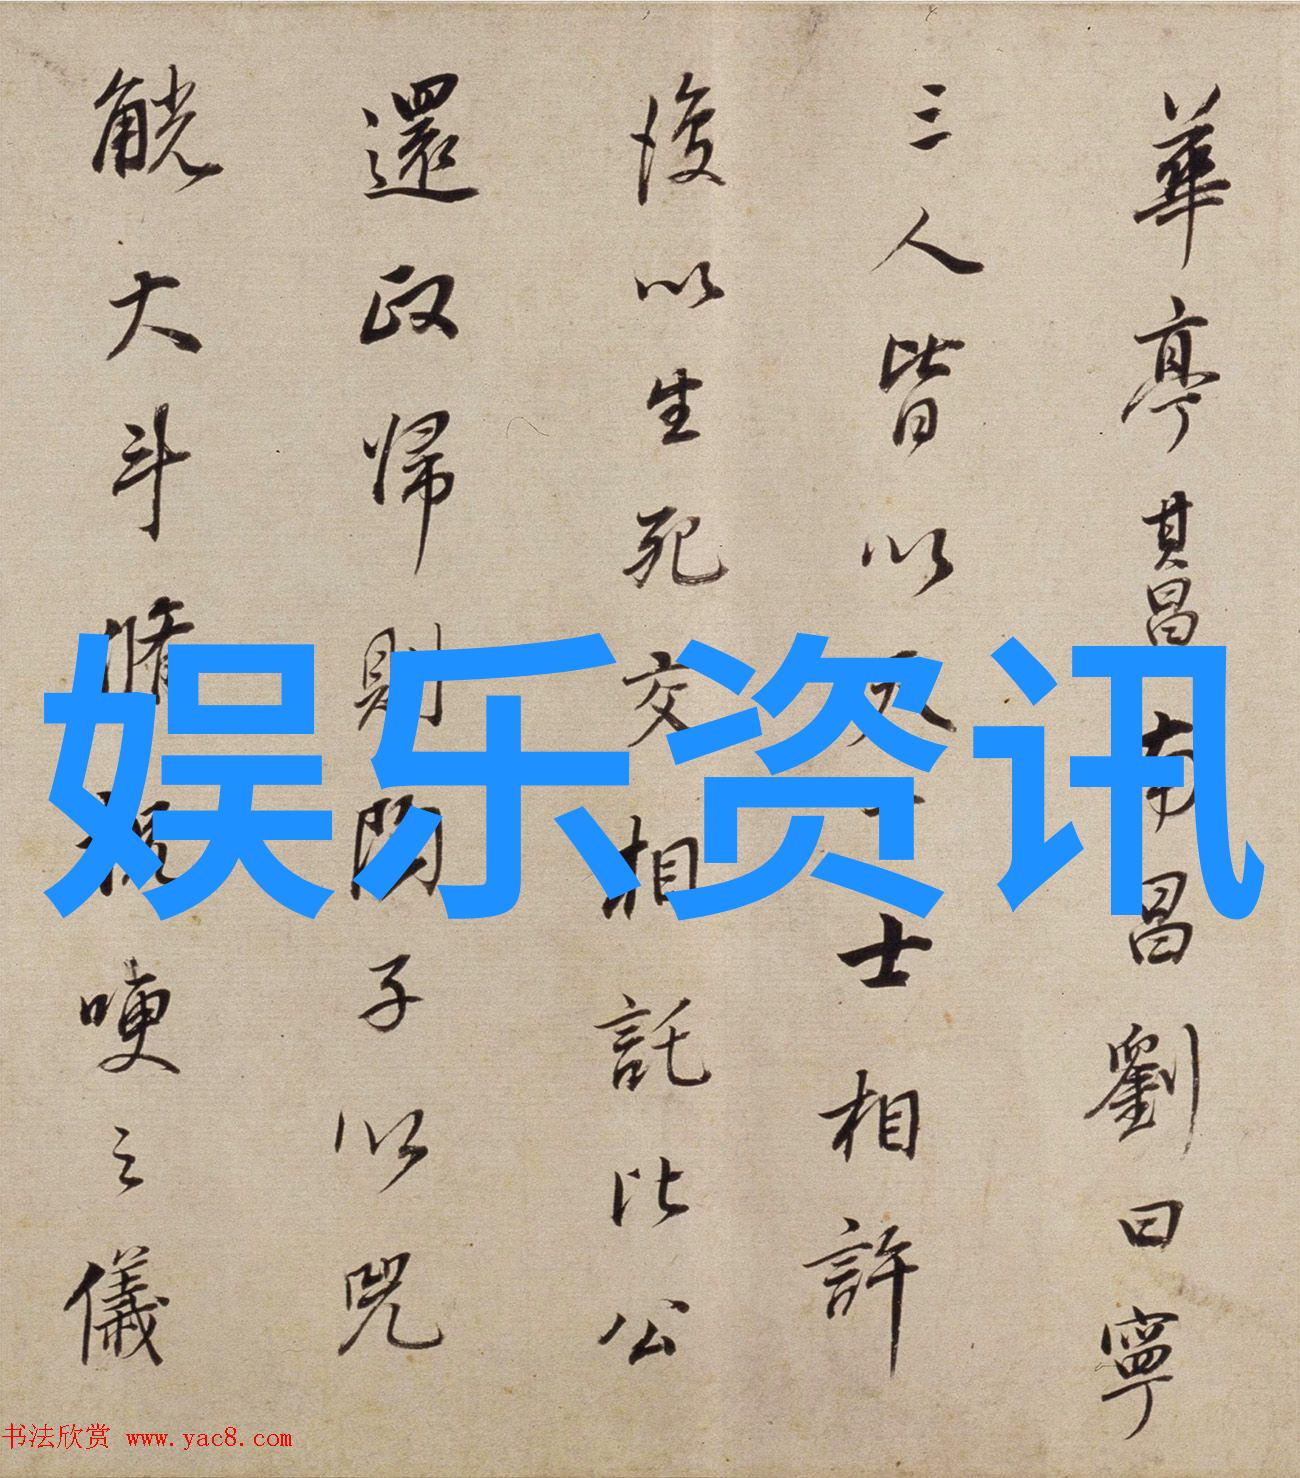 華亭其昌南昌劉曰寧
三人皆以天下士相許
後以生死交相託比公
還政帰則子以兕
觥大斗脩祝哽之儀
娱乐资讯
书法欣赏 www.yac8.com